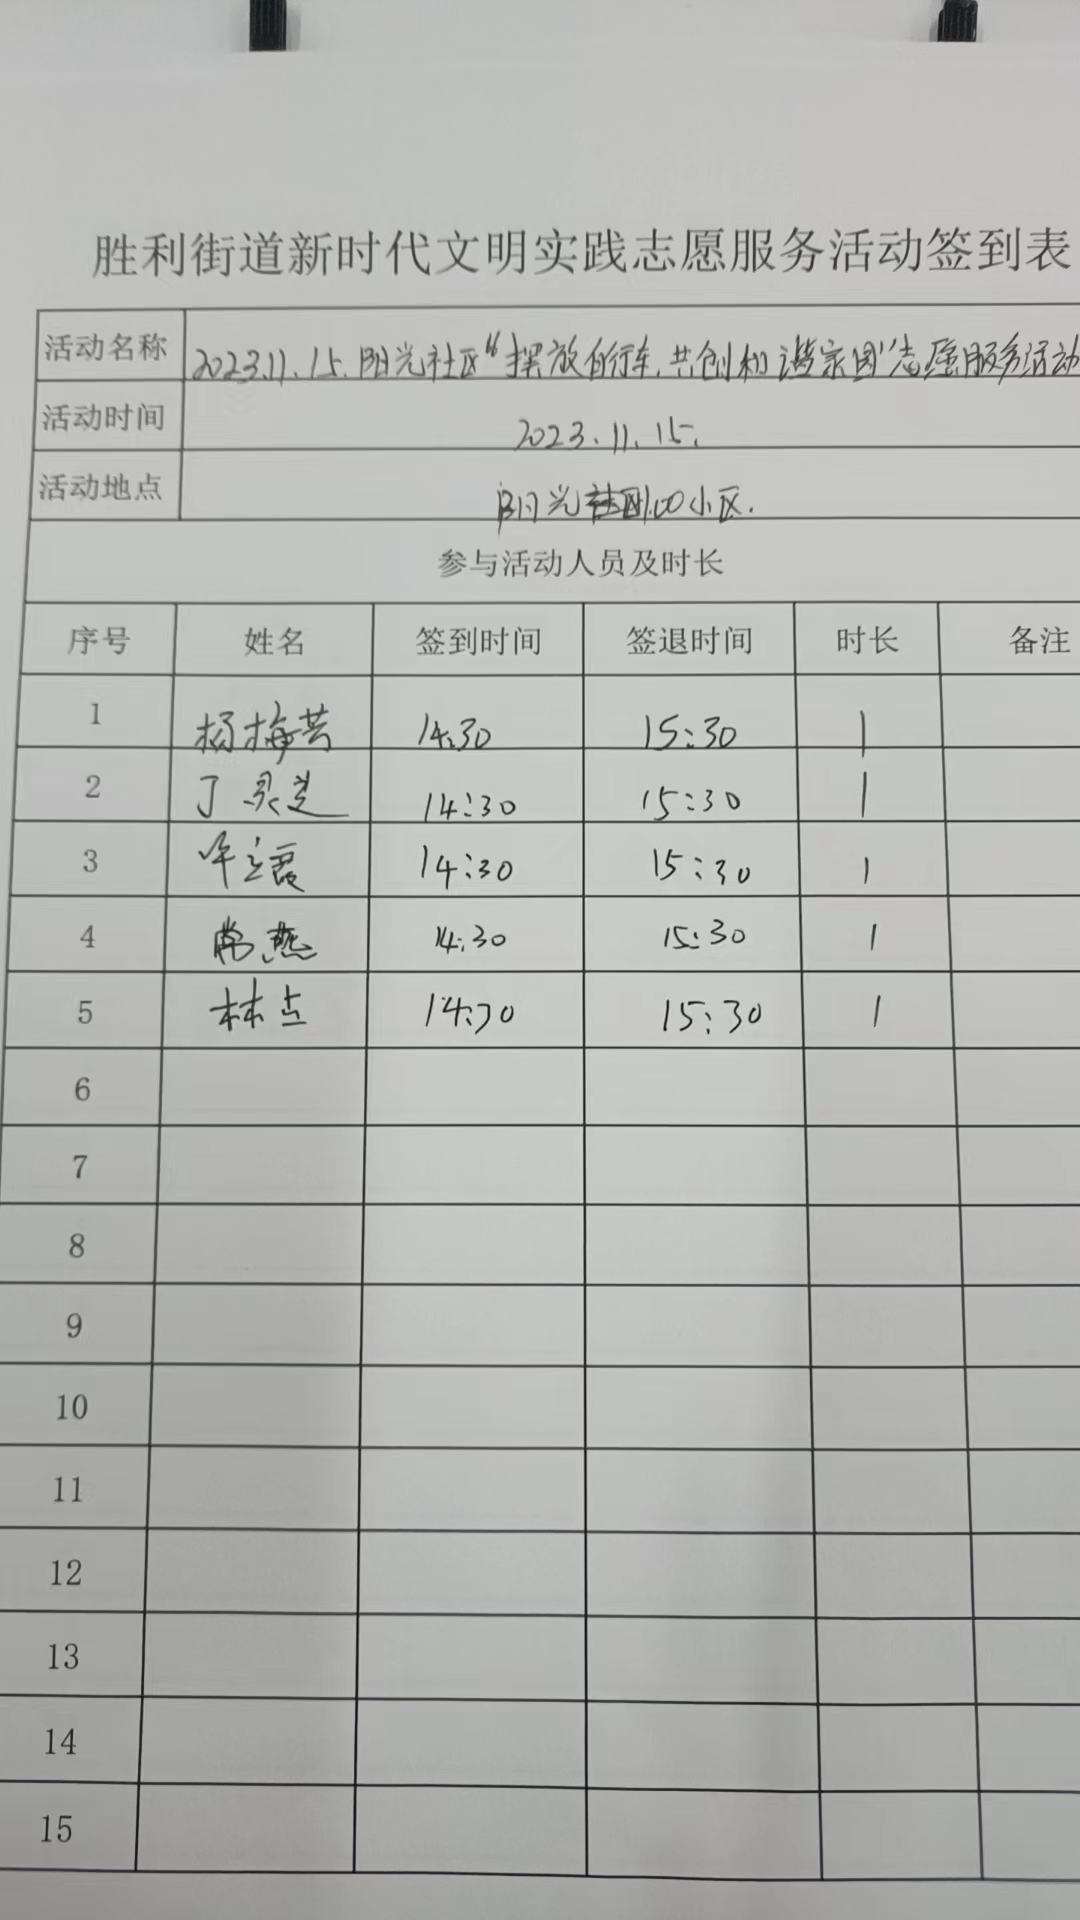 胜利街道新时代文明实践志愿服务活动签到表
活动名称 2023.11.15.阳光社区“摆放自行车,共创和谐家园”志愿服务活动
活动时间 2023.11.15.
活动地点 阳光100小区.
参与活动人员及时长
序号 姓名 签到时间 签退时间 时长 备注
1 杨梅芸 14:30 15:30 1
2 丁灵芝 14:30 15:30 1
3 14:30 15:30 1
4 常燕 14:30 15:30 1
5 14:30 15:30 1
6
7
8
9
10
11
12
13
14
15